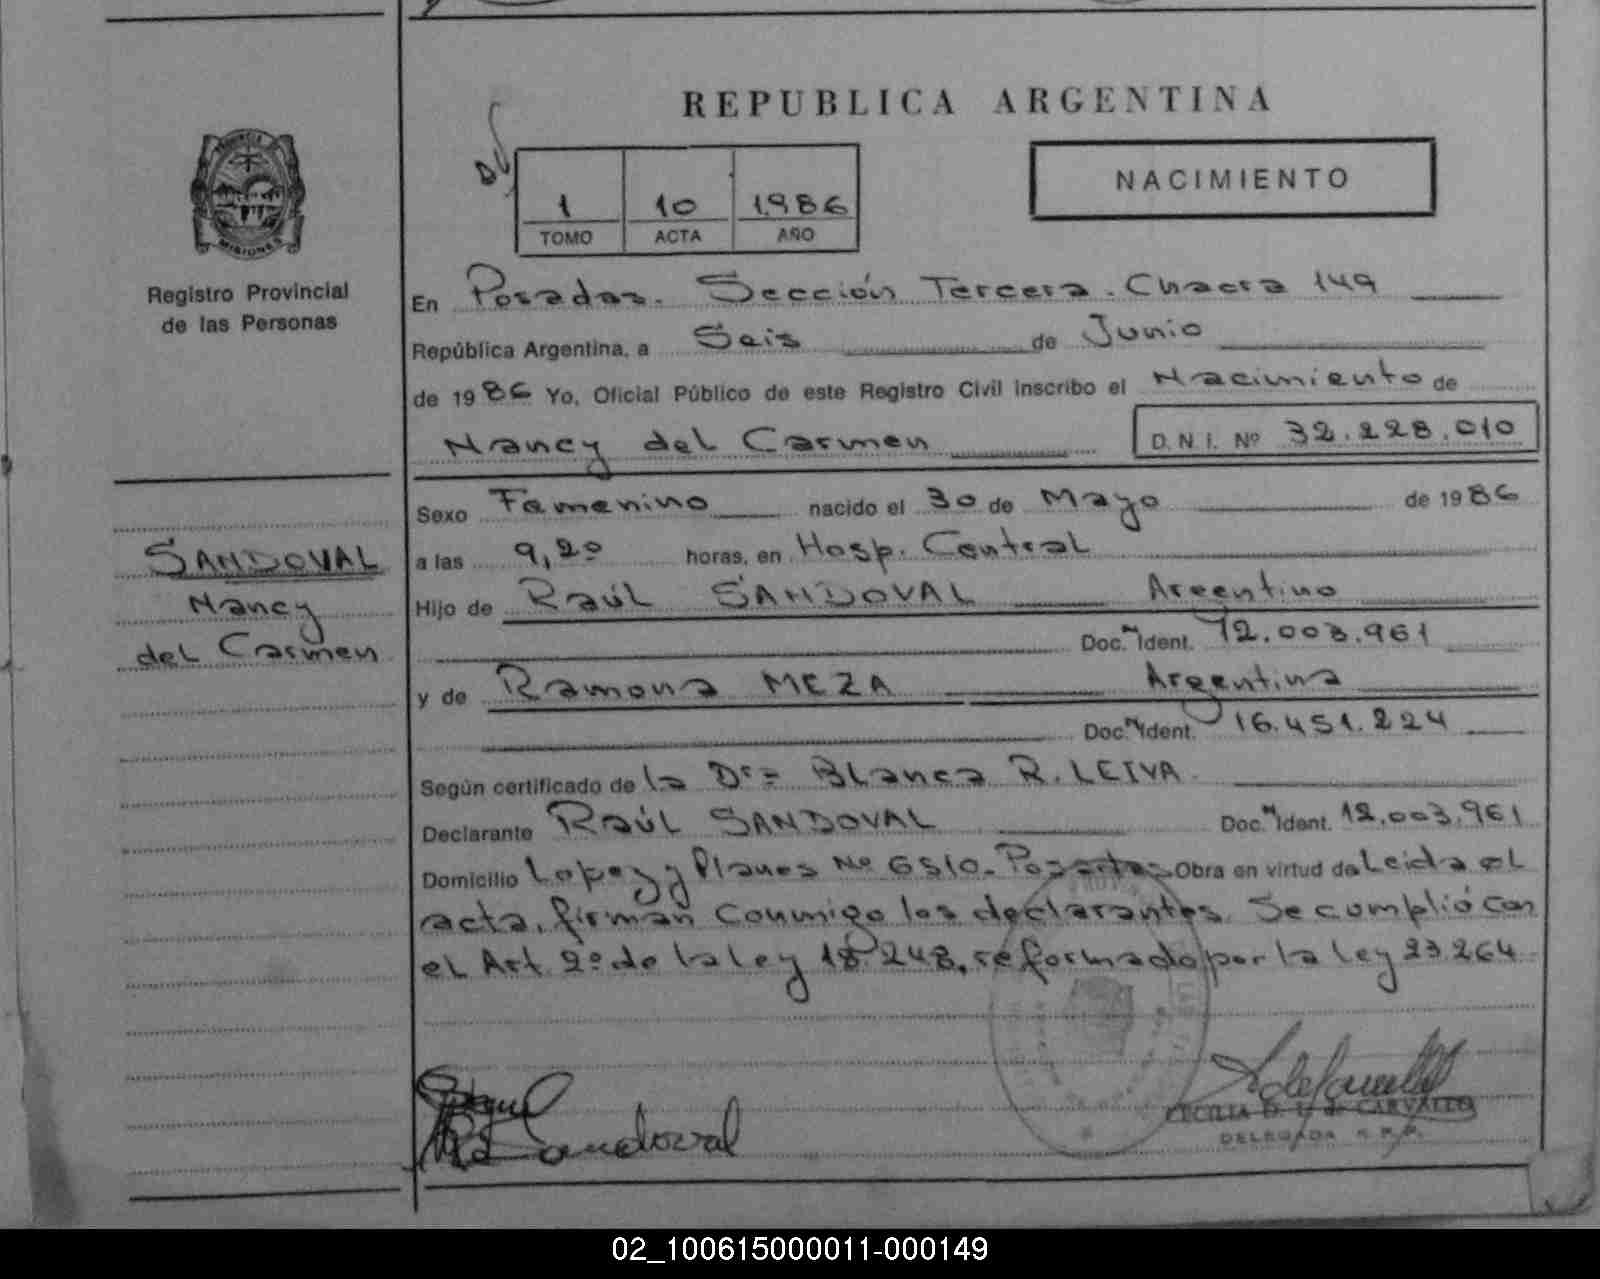 REPUBLICA ARGENTINA
NACIMIENTO
1 10 1986
TOMO ACTA AÑO
PROVINCIA
MISIONES
Registro Provincial
de las Personas
En Posadas. Sección Tercera. Chacra 149
República Argentina, a Seis de Junio
de 1986 Yo, Oficial Público de este Registro Civil inscribo el Nacimiento de
Nancy del Carmen D.N.I. Nº 32.228.010
Sexo Femenino nacido el 30 de Mayo de 1986
SANDOVAL
Nancy
del Carmen
a las 9,20 horas, en Hosp. Central
Hijo de Raúl SANDOVAL Argentino
Doc. Ident. 12.003.961
y de Ramona MEZA Argentina
Doc. Ident. 16.451.224
Según certificado de la Dra Blanca R. LEIVA.
Declarante Raúl SANDOVAL Doc. Ident. 12.003.961
Domicilio Lopez y Planes Nº 6510- Posadas Obra en virtud de Leida el
acta, firman conmigo los declarantes. Se cumplió con
el Art. 2º de la ley 18.248, reformado por la ley 23.264
Sandoval
CECILIA D. L. de CARVALLO
DELEGADA R.P.P.
02_100615000011-000149